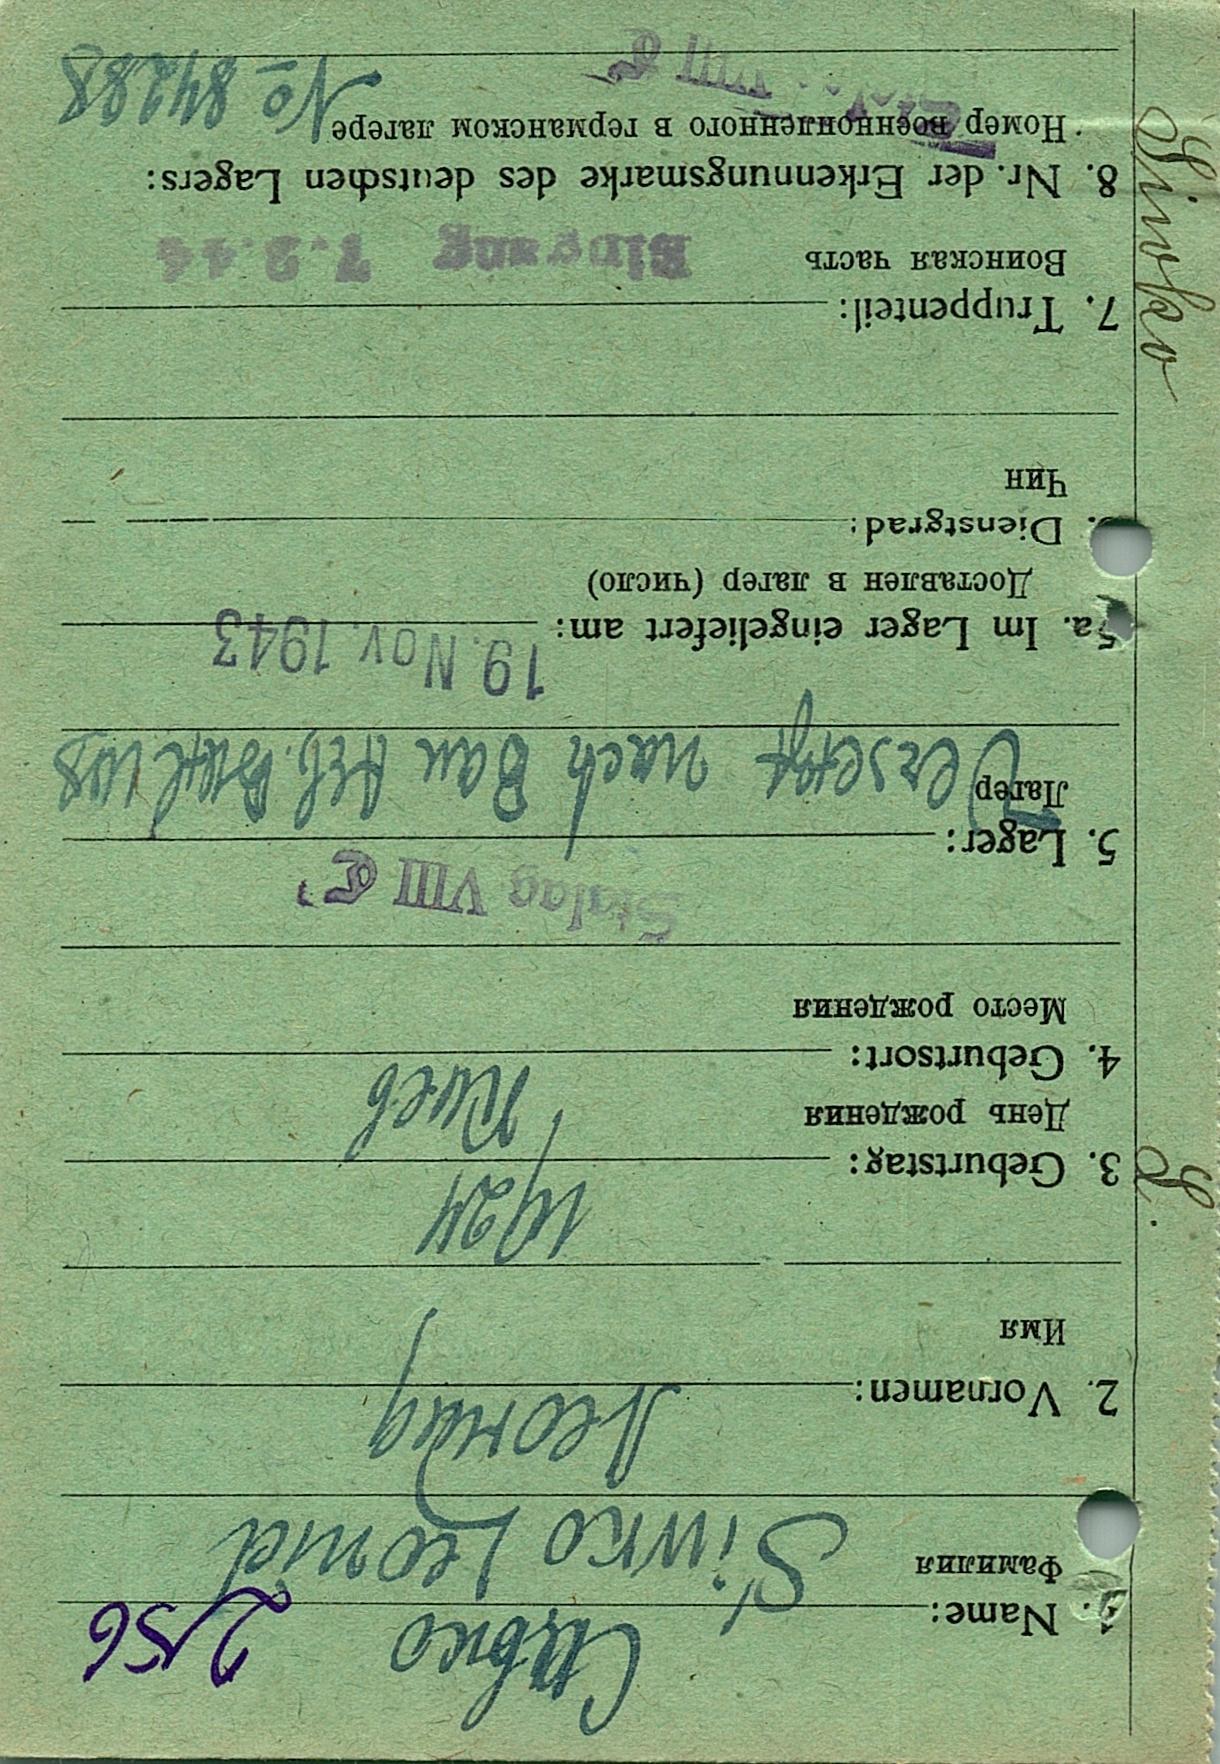 2/56
Сивко
1. Name:
Фамилия
Sivko Leonid
Леонид
2. Vornamen:
Имя
1924
3. Geburtstag:
День рождения
Киев
4. Geburtsort:
Место рождения
Stalag VIII C
5. Lager:
Лагер
Versetzt nach Bau Arb. Batl
19. Nov. 1943
5a. Im Lager eingeliefert am:
Доставлен в лагер (число)
Dienstgrad:
Чин
7. Truppenteil:
Воинская часть
Eingang 7.2.44
8. Nr. der Erkennungsmarke des deutschen Lagers:
Номер военнопленного в германском лагере
№ 84288
Stalag VIII C
Sivko
L.